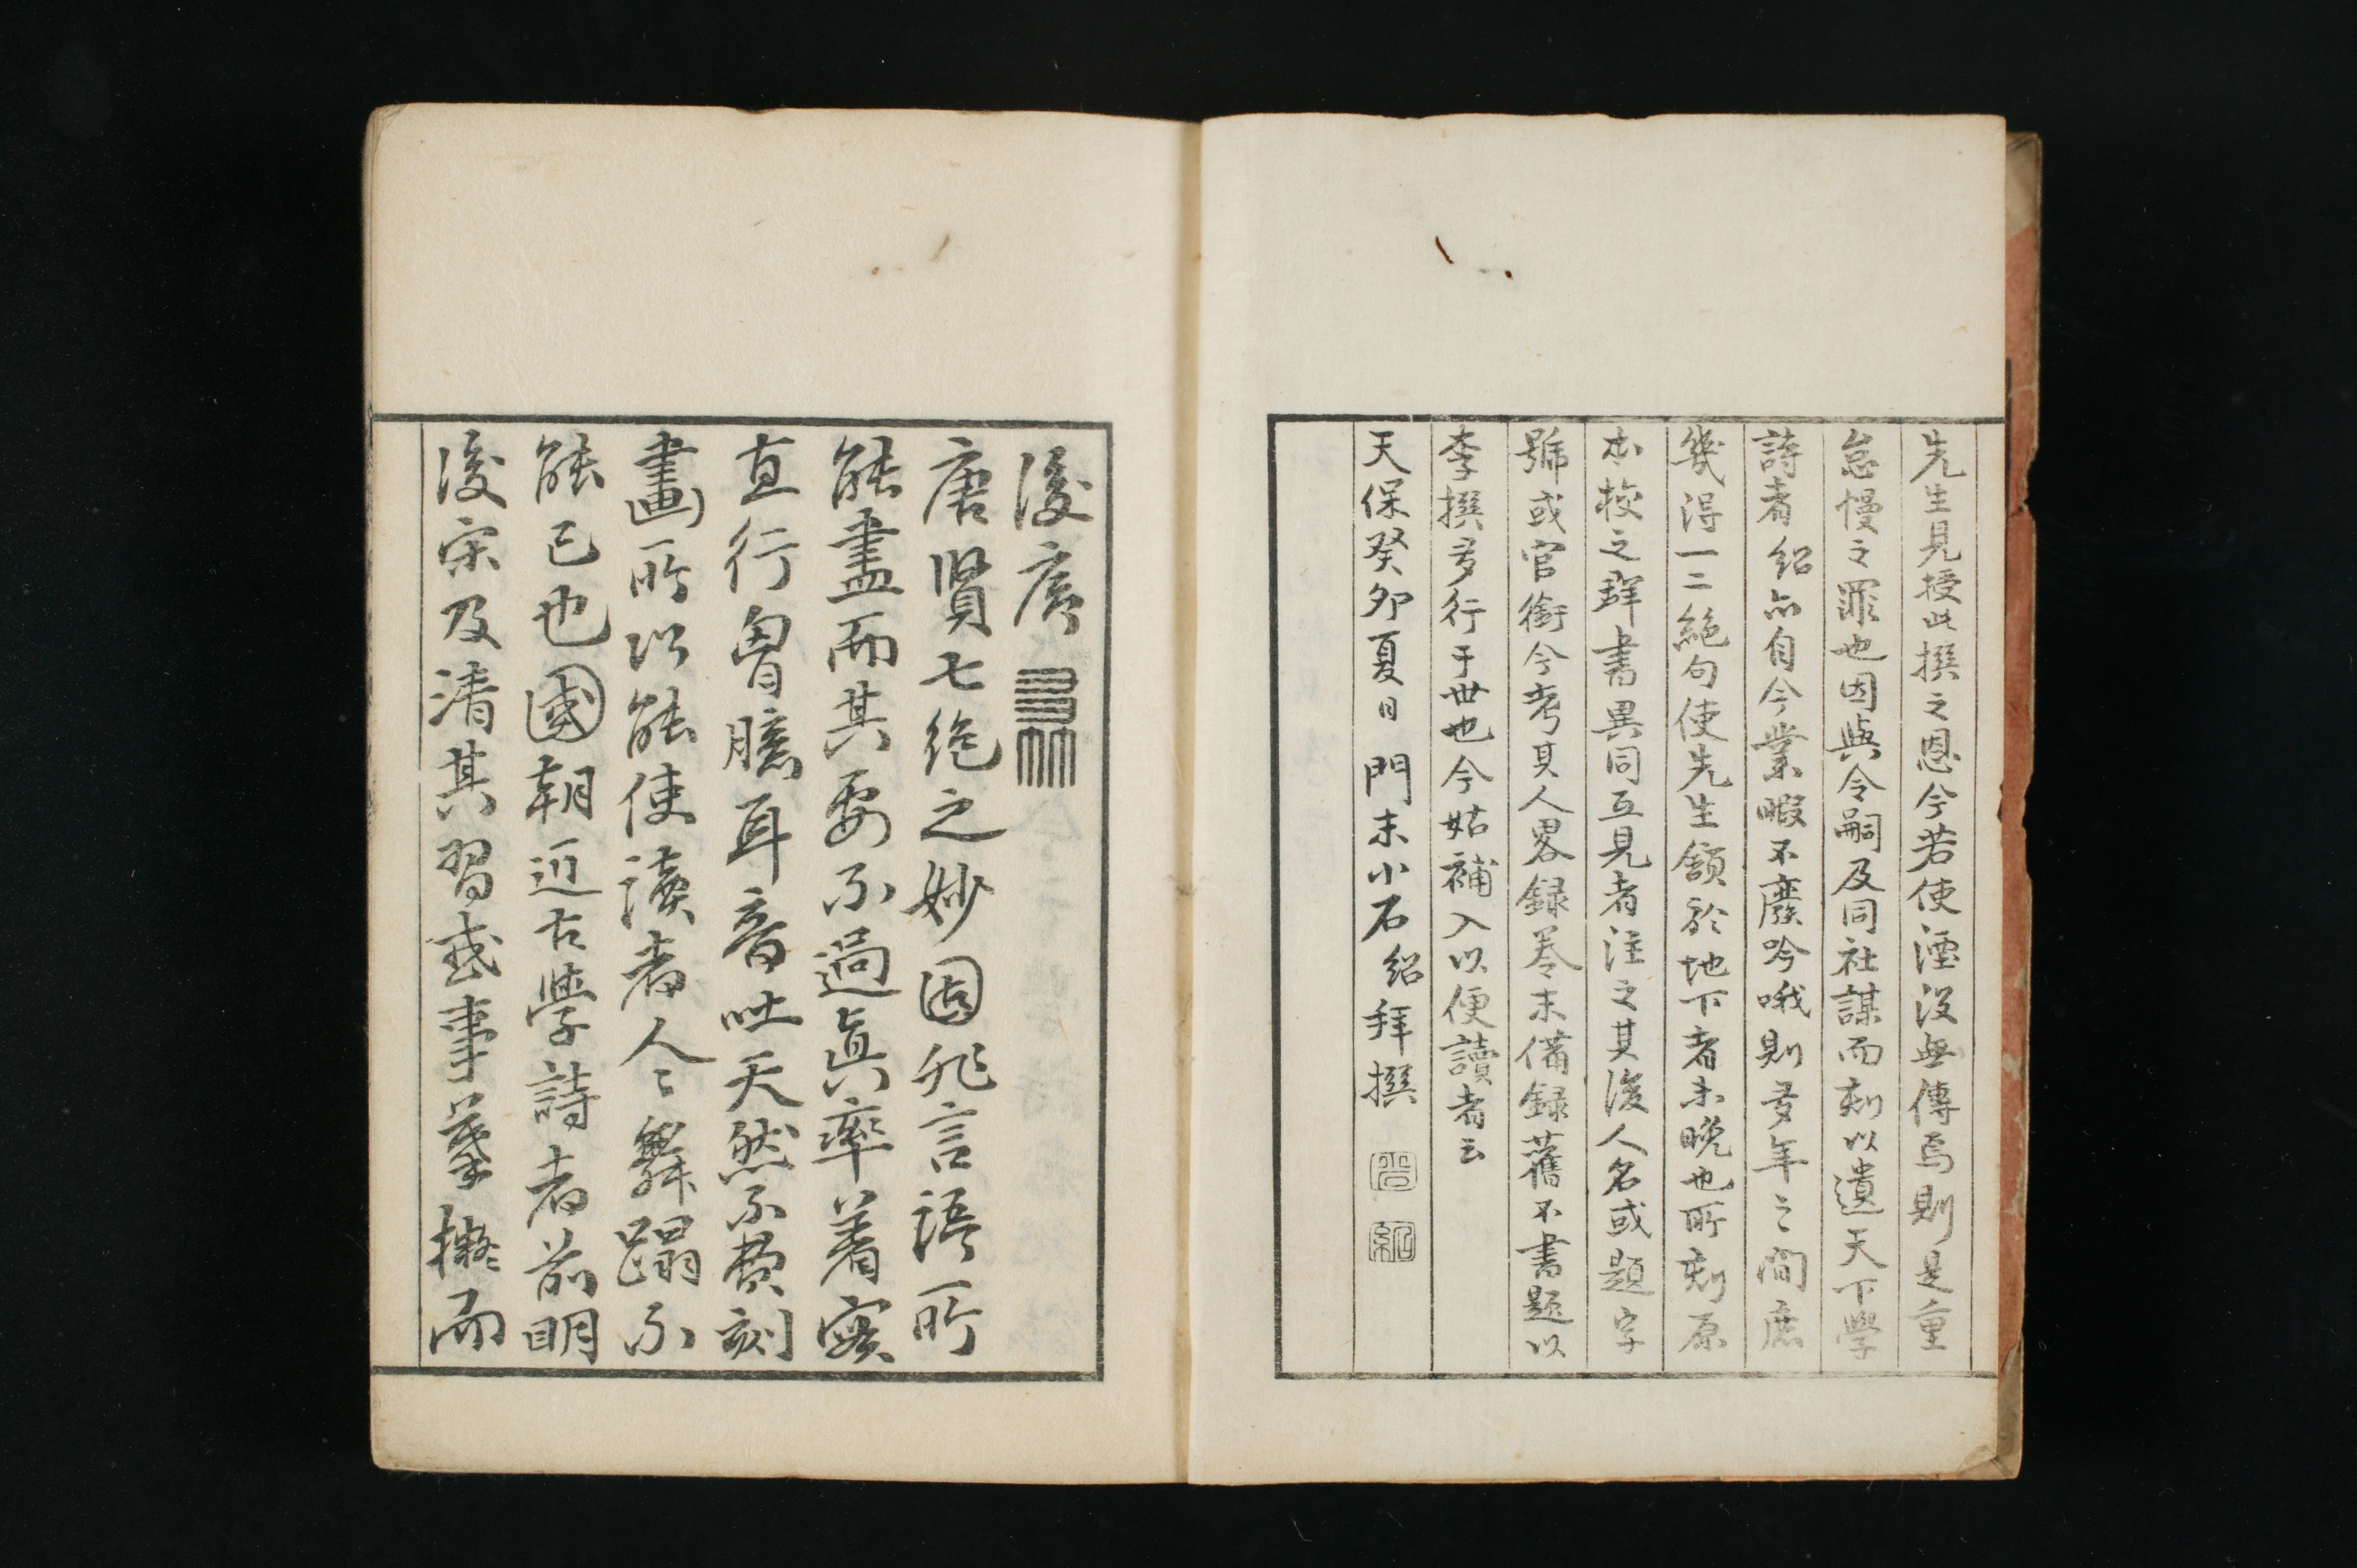 先生見授此撰之恩今若使湮没無傳焉則是重
怠慢之罪也因與令嗣及同社謀而刻以遺天下學
詩者紹亦自今業暇不廢吟哦則多年之間庶
幾得一二絶句使先生頷於地下者未晩也所刻原
本校之群書異同互見者注之其後人名或題字
號或官銜今考其人畧録卷末備録舊不書題以
李撰多行于世也今姑補入以便讀者云
天保癸卯夏日門末小石紹拜撰
後序
唐賢七絶之妙固非言語所
能盡而其要不過眞率著實
直行胷臆耳音吐天然不費刻
畫所以能使讀者人々舞蹋不
能已也國朝近古學詩者前明
後宋及清其習或事摹擬而